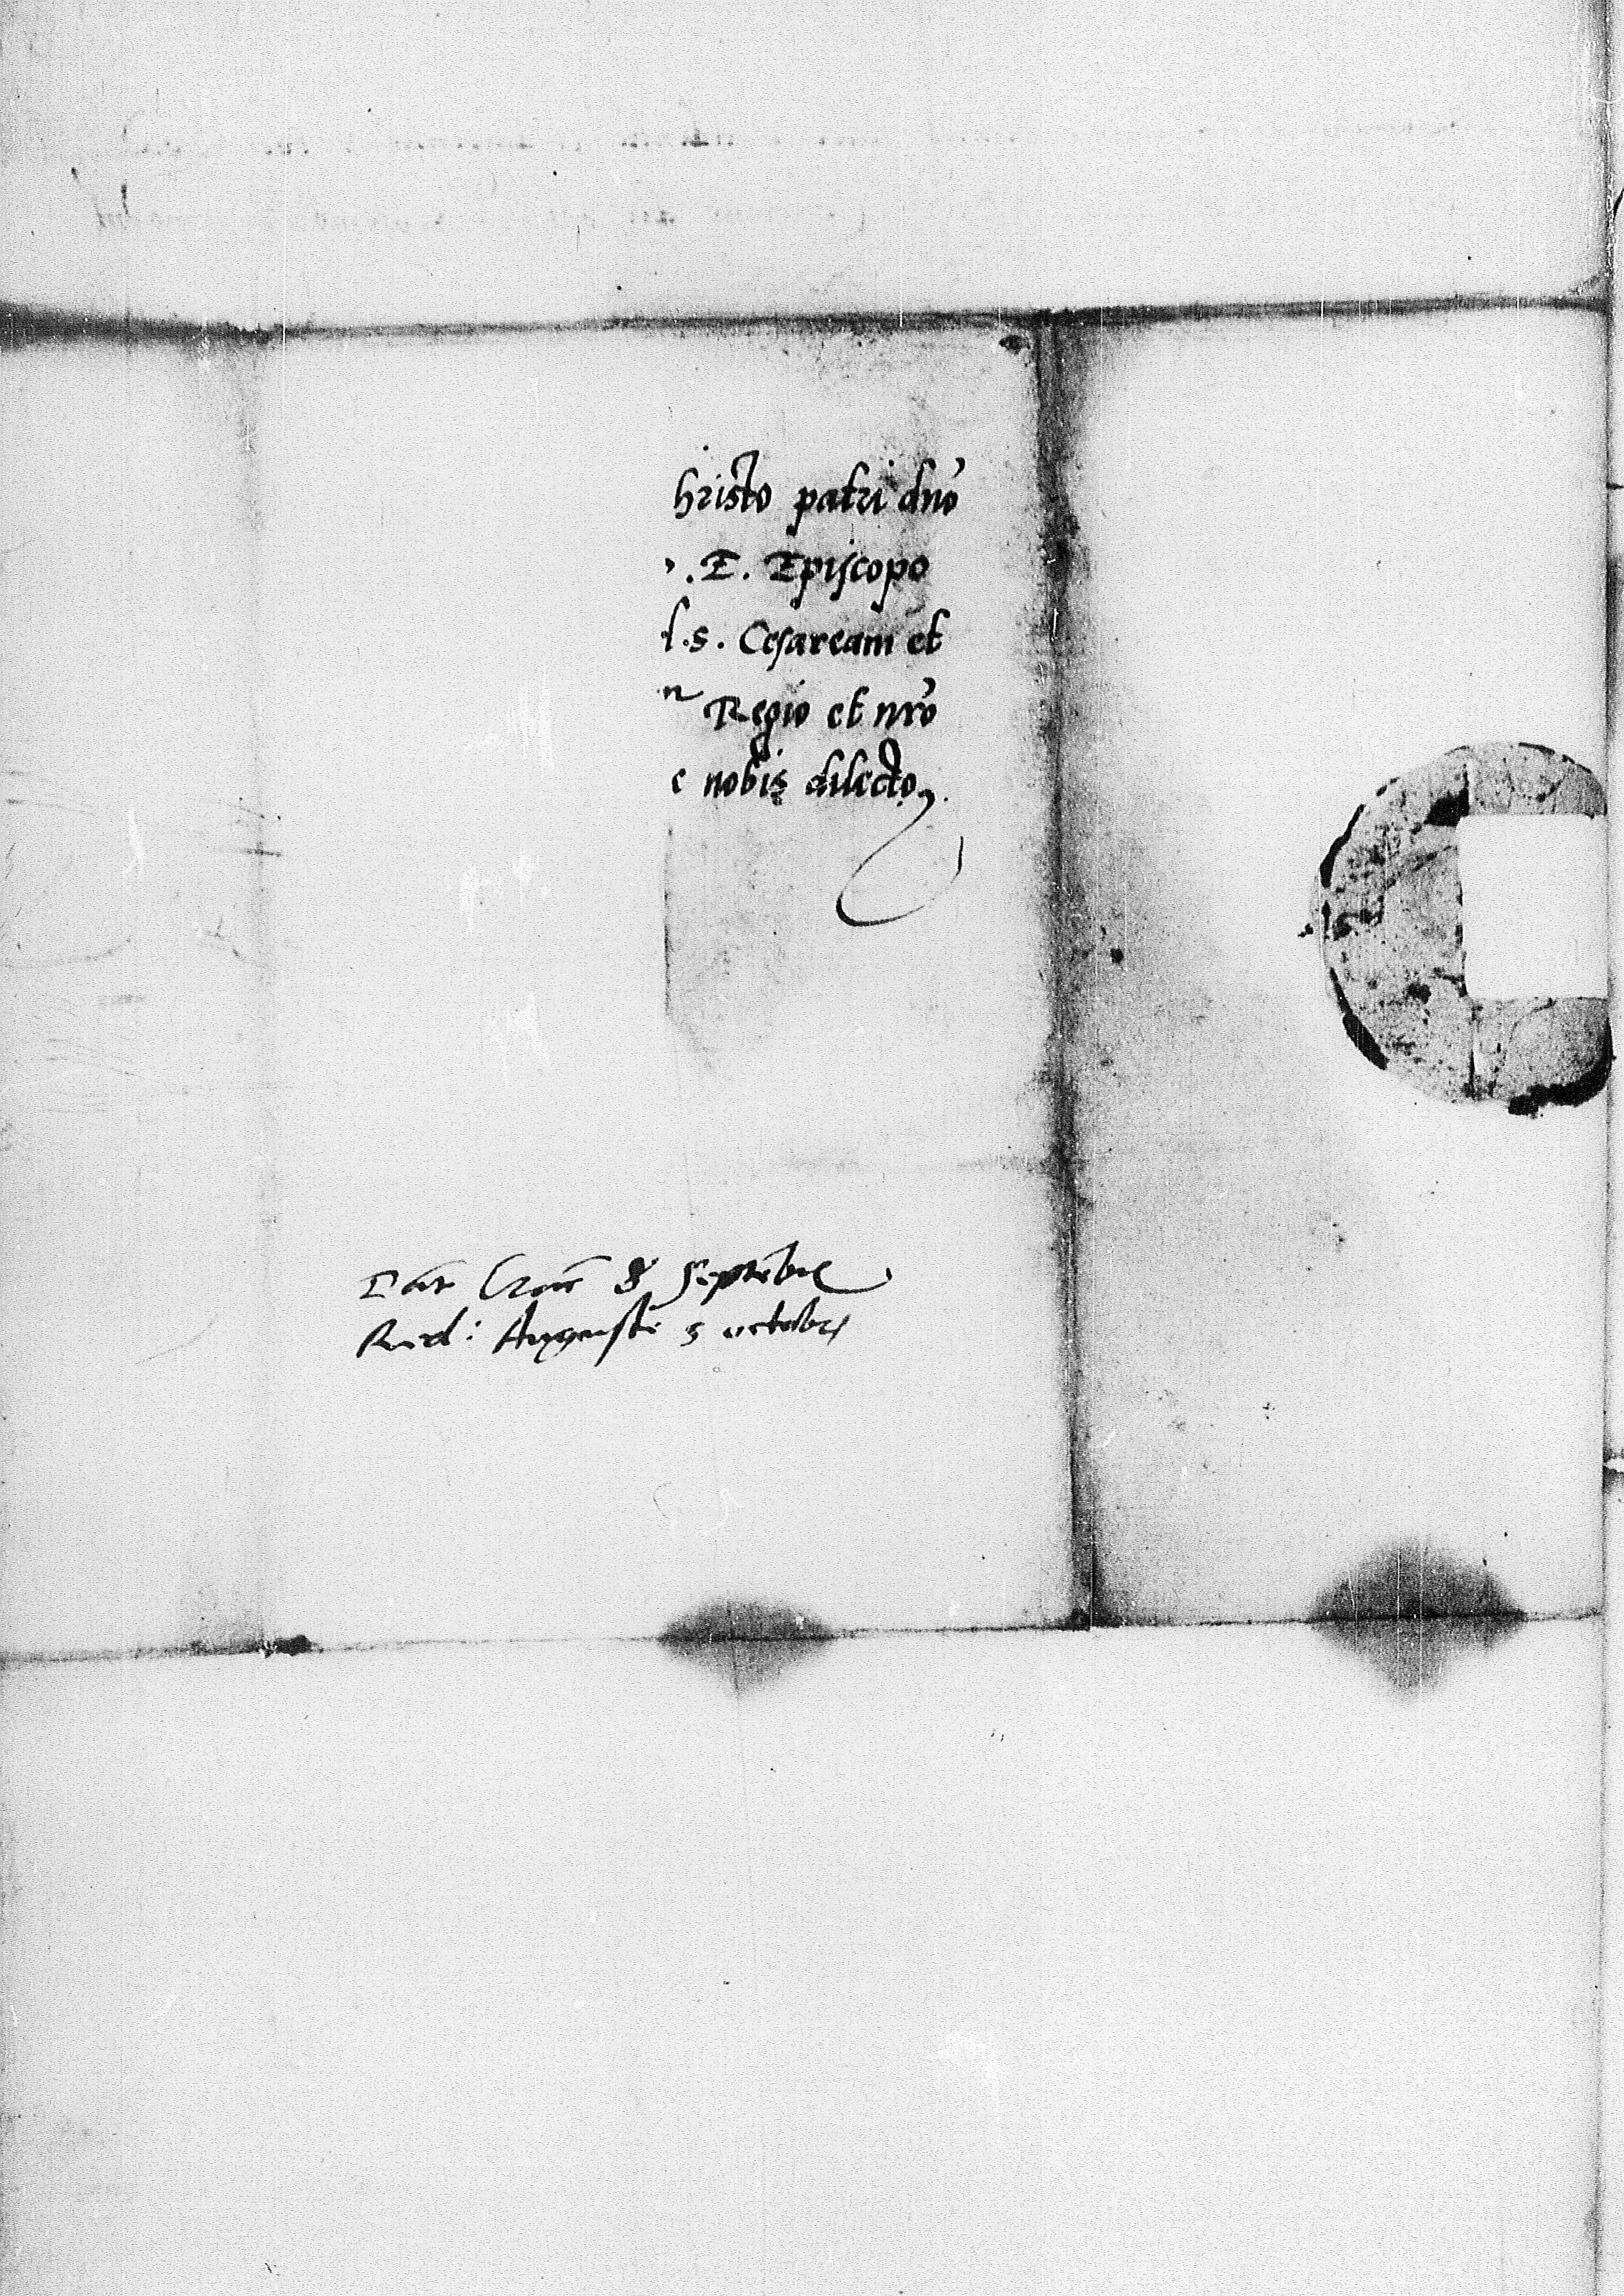 hristo patri dno
. E. Episcopo
l. s. Cesaream et
n Regio et nro
e nobis dilecto
Dat Crac 8 Septebre
Red: Auguste 5 octobrs